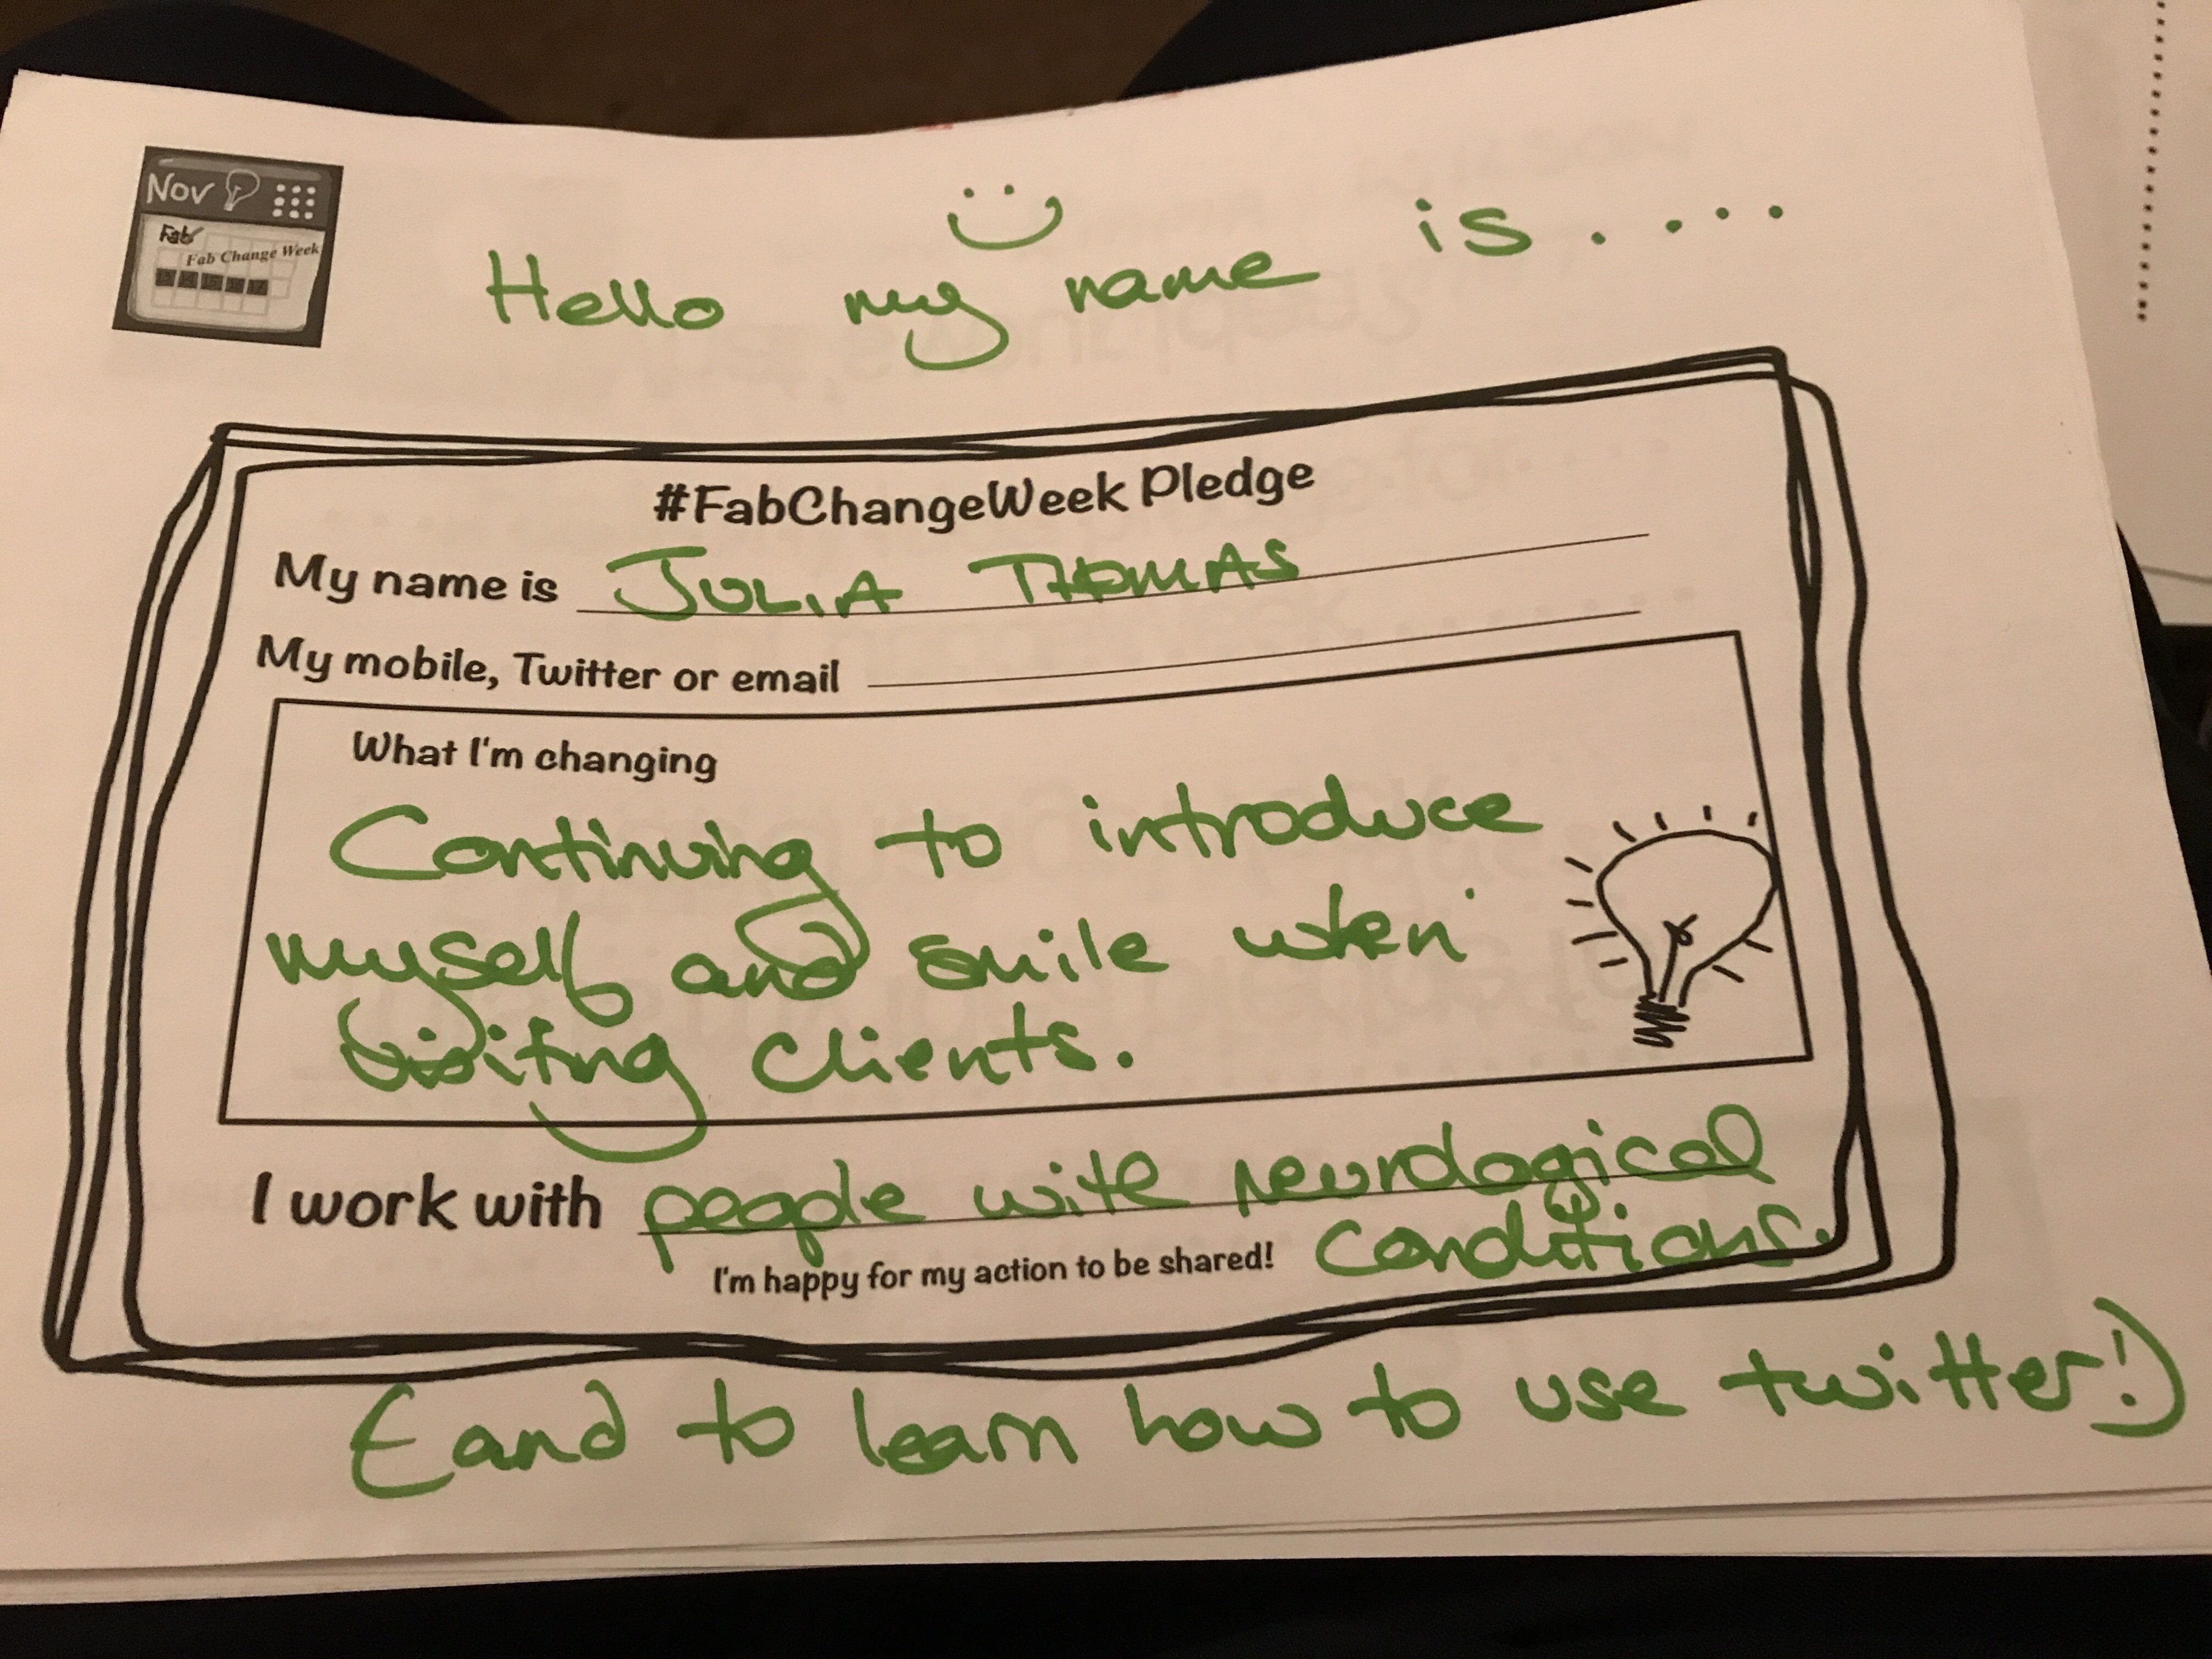 Nov
Fab
Fab Change Week
13 14 15 16 17
Hello my name is.....
#FabChangeWeek Pledge
My name is JULIA THOMAS
My mobile, Twitter or email
What I'm changing
Continuing to introduce
myself and smile when
visiting clients.
I work with people with neurological
conditions.
I'm happy for my action to be shared!
(and to learn how to use twitter!)